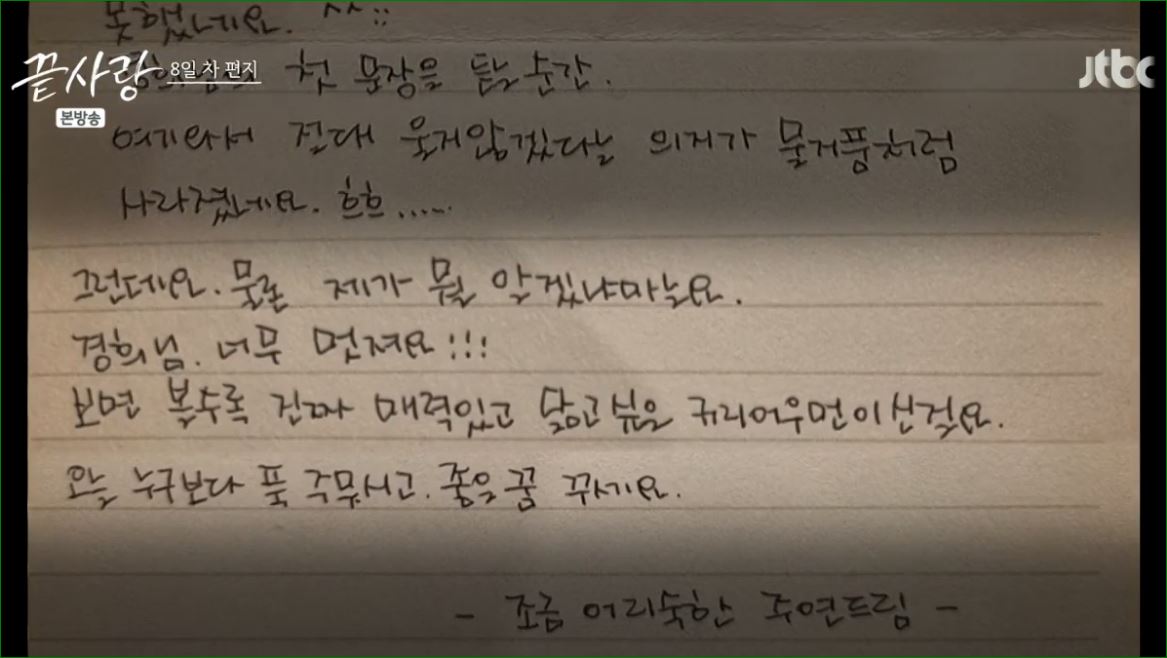 못했네요. ^^;;
끝사랑 8일 차 편지
jtbc
본방송
첫 문장을 듣는 순간.
여기와서 절대 울지않겠다는 의지가 물거품처럼
사라졌네요. 흐흐.....
그런데요. 물론 제가 뭘 알겠냐마는요.
경희님. 너무 멋져요!!!
보면 볼수록 진짜 매력있고 닮고싶은 커리어우먼이신걸요.
오늘 누구보다 푹 주무시고. 좋은 꿈 꾸세요.
- 조금 어리숙한 주연드림 -